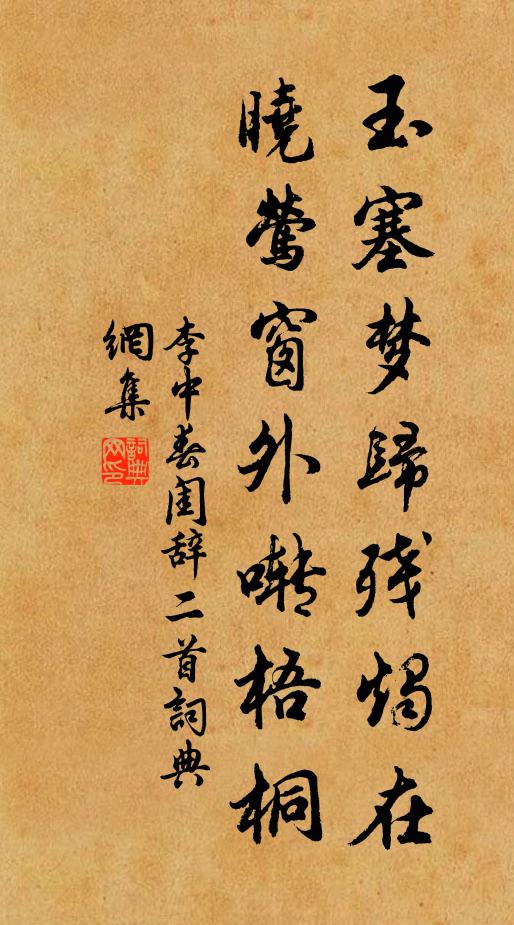 玉塞梦歸残燭在
曉鶯窗外啭梧桐
李中春闺辞二首詞典
網集
詞典網印